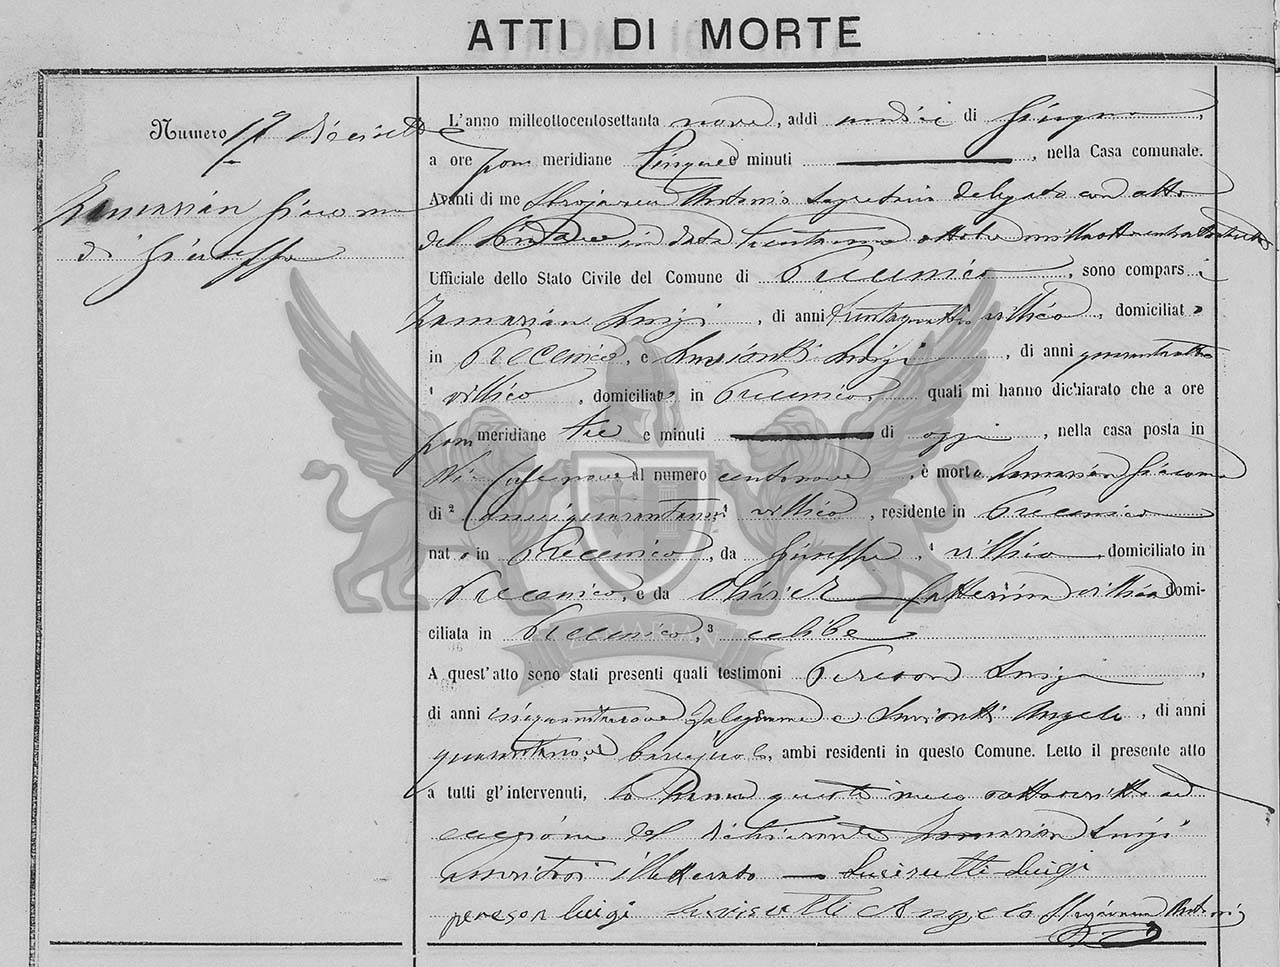 ATTI DI MORTE
Numero 17 diecisette
Zamarian Giacomo
di Giuseppe
L'anno milleottocentosettanta nove, addi undici di Giugno,
a ore pom meridiane cinque e minuti, nella Casa comunale.
Avanti di me Antonio Segretario delegato con atto
del Sindaco in data trentauno ottobre milleottocento
Ufficiale dello Stato Civile del Comune di Precenico, sono compars i
Zamarian Luigi, di anni trentaquattro villico, domiciliat o
in Precenico, e Luigi, di anni quarantotto
villico, domiciliato in Precenico, quali mi hanno dichiarato che a ore
pom meridiane tre e minuti di oggi, nella casa posta in
Via Case nove al numero centonove, è morto Zamarian Giacomo
di ² anni quarantuno villico, residente in Precenico
nato in Precenico, da Giuseppe, villico domiciliato in
Precenico, e da Olivier Catterina villica domi-
ciliata in Precenico, ³ celibe
A quest'atto sono stati presenti quali testimoni Pereson Luigi,
di anni cinquantanove falegname e Angelo, di anni
quarantanove, ambi residenti in questo Comune. Letto il presente atto
a tutti gl'intervenuti, lo hanno questi meco sottoscritto ad
eccezione del dichiarante Zamarian Luigi
illetterato Luigi
pereson luigi Angelo
ZAMARIAN